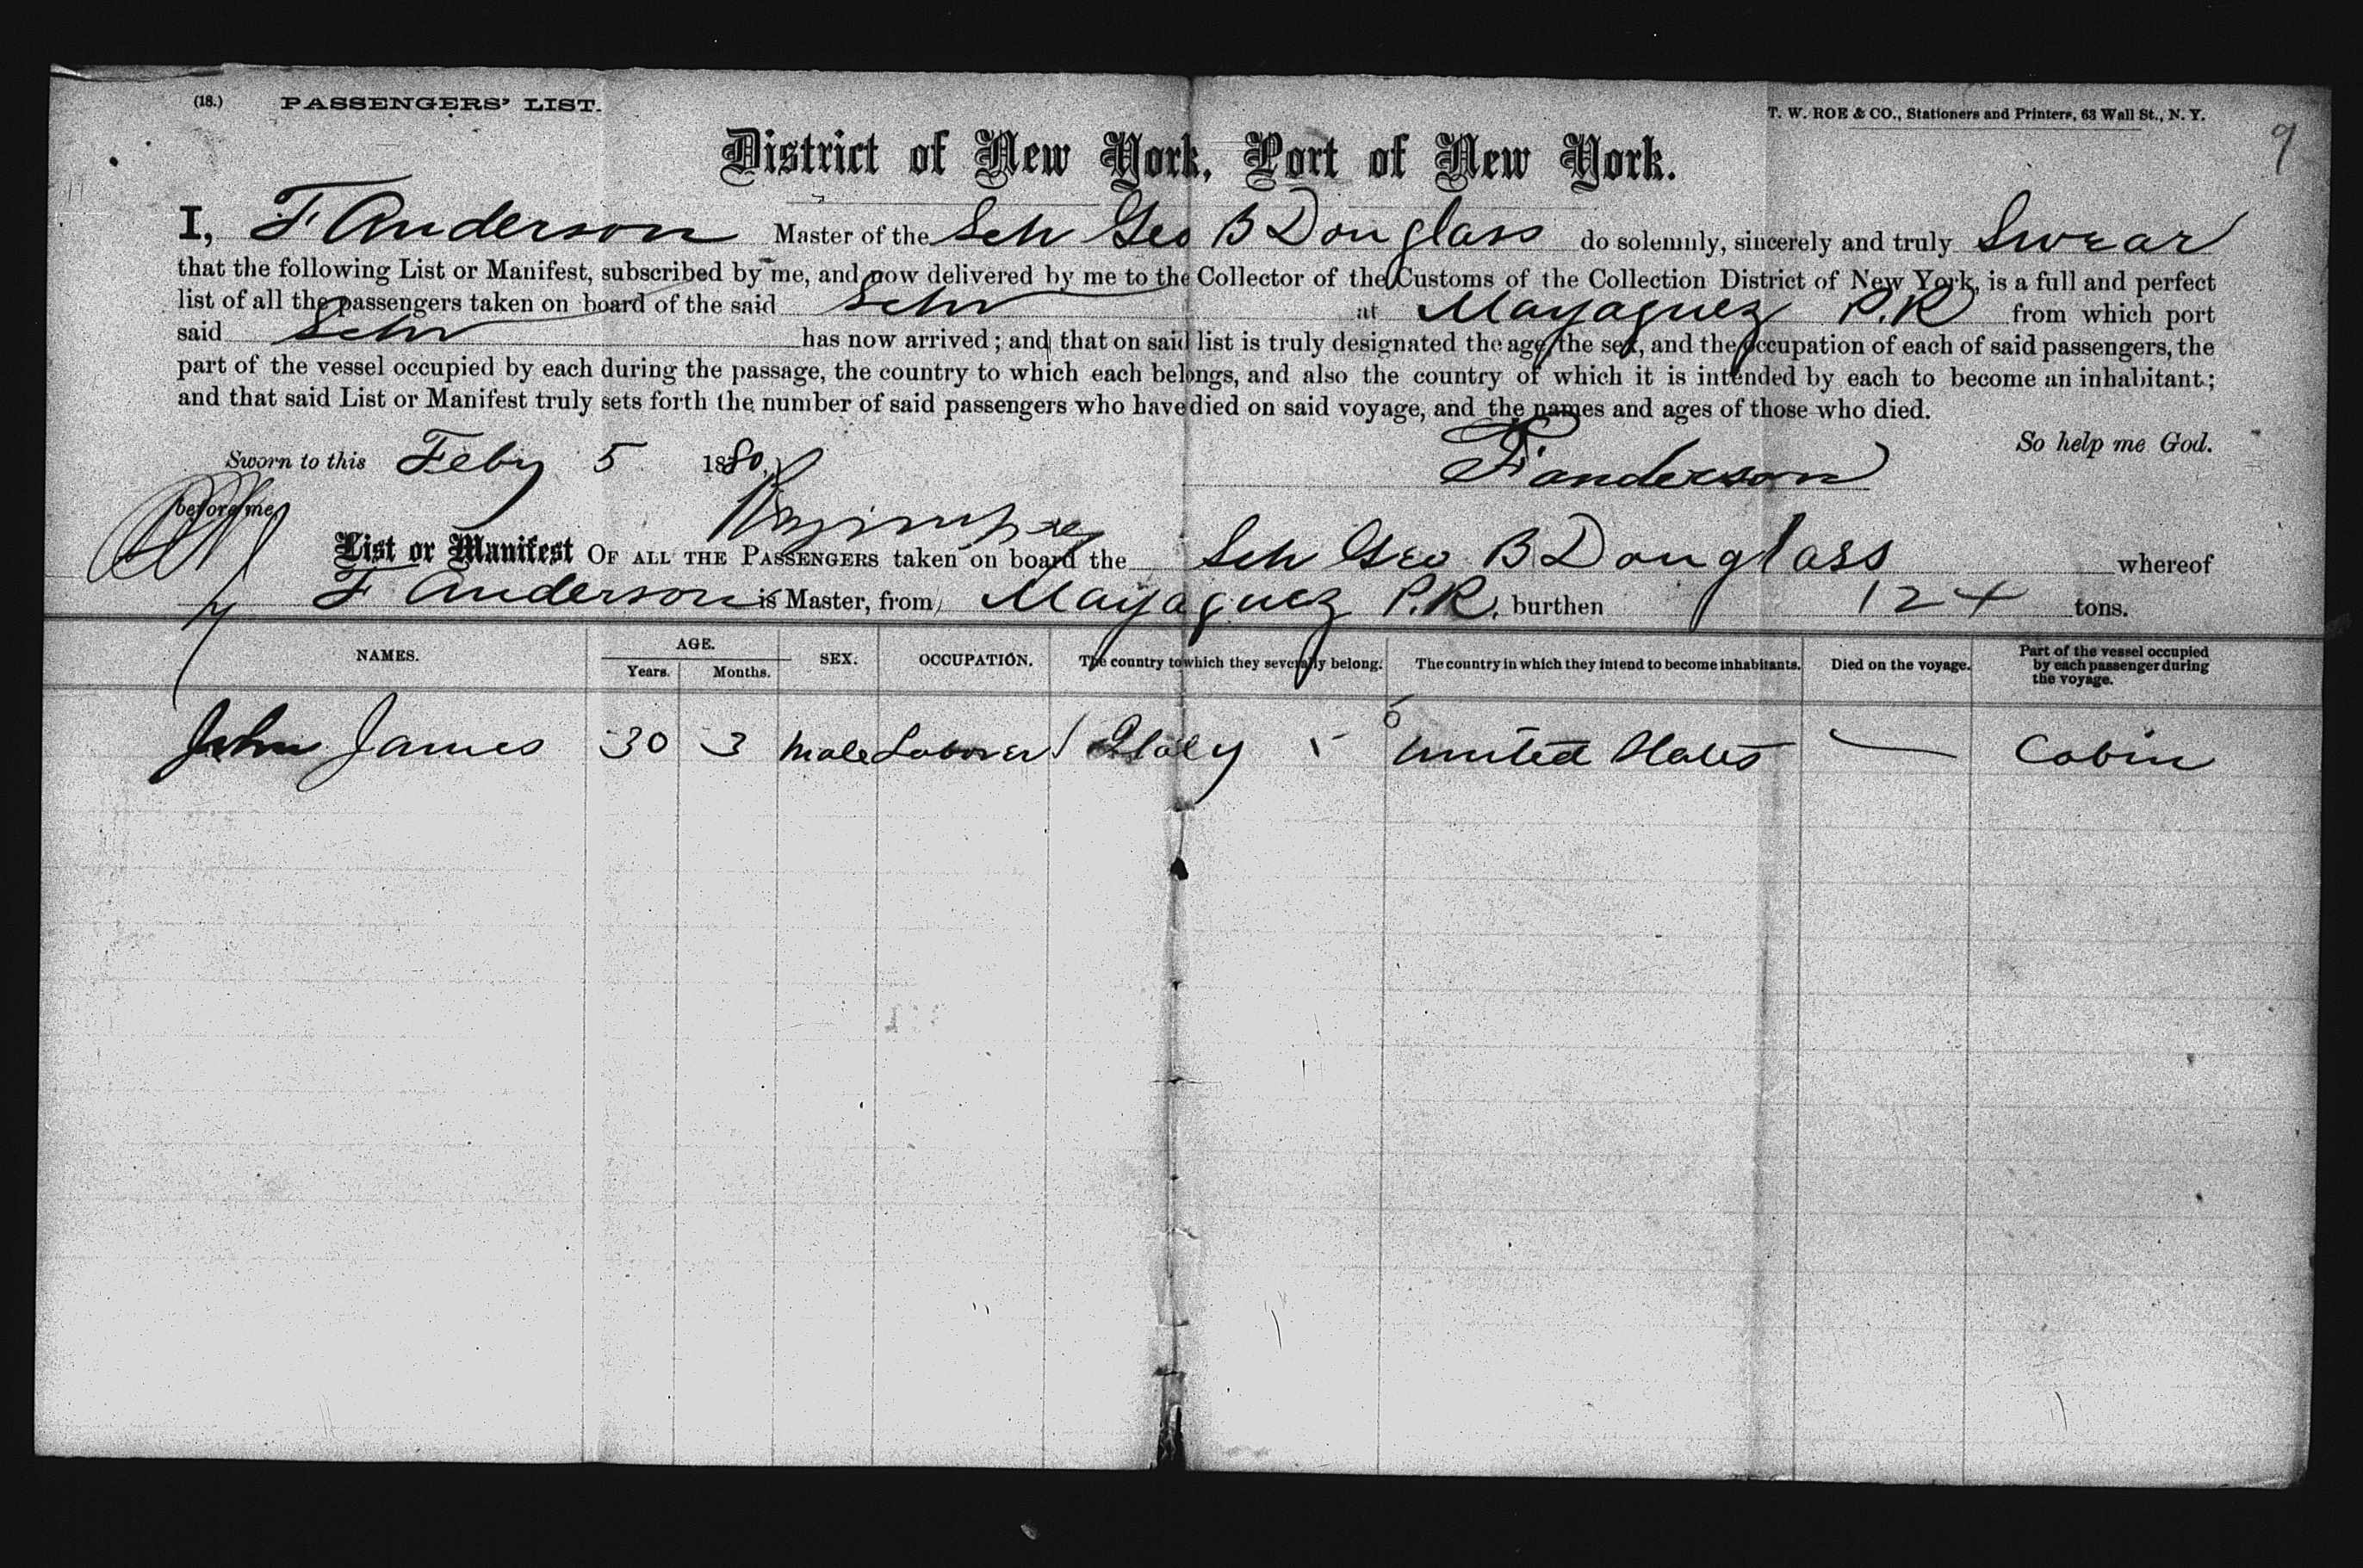 (18.) PASSENGERS' LIST.
T. W. ROE & CO., Stationers and Printers, 63 Wall St., N. Y.
9
District of New York, Port of New York.
I, F Anderson Master of the Sch Geo B Douglass do solemnly, sincerely and truly Swear
that the following List or Manifest, subscribed by me, and now delivered by me to the Collector of the Customs of the Collection District of New York, is a full and perfect
list of all the passengers taken on board of the said Schr at Mayaguez P.R from which port
said Schr has now arrived; and that on said list is truly designated the age, the sex, and the occupation of each of said passengers, the
part of the vessel occupied by each during the passage, the country to which each belongs, and also the country of which it is intended by each to become an inhabitant;
and that said List or Manifest truly sets forth the number of said passengers who have died on said voyage, and the names and ages of those who died.
So help me God.
Sworn to this Feby 5 1880,
F anderson
before me
List or Manifest OF ALL THE PASSENGERS taken on board the Sch Geo B Douglass whereof
F Anderson is Master, from Mayaguez P.R. burthen 124 tons.
NAMES. AGE. Years. Months. SEX. OCCUPATION. The country to which they severally belong. The country in which they intend to become inhabitants. Died on the voyage. Part of the vessel occupied by each passenger during the voyage.
John James 30 3 Male Laborer Italy United States — Cabin